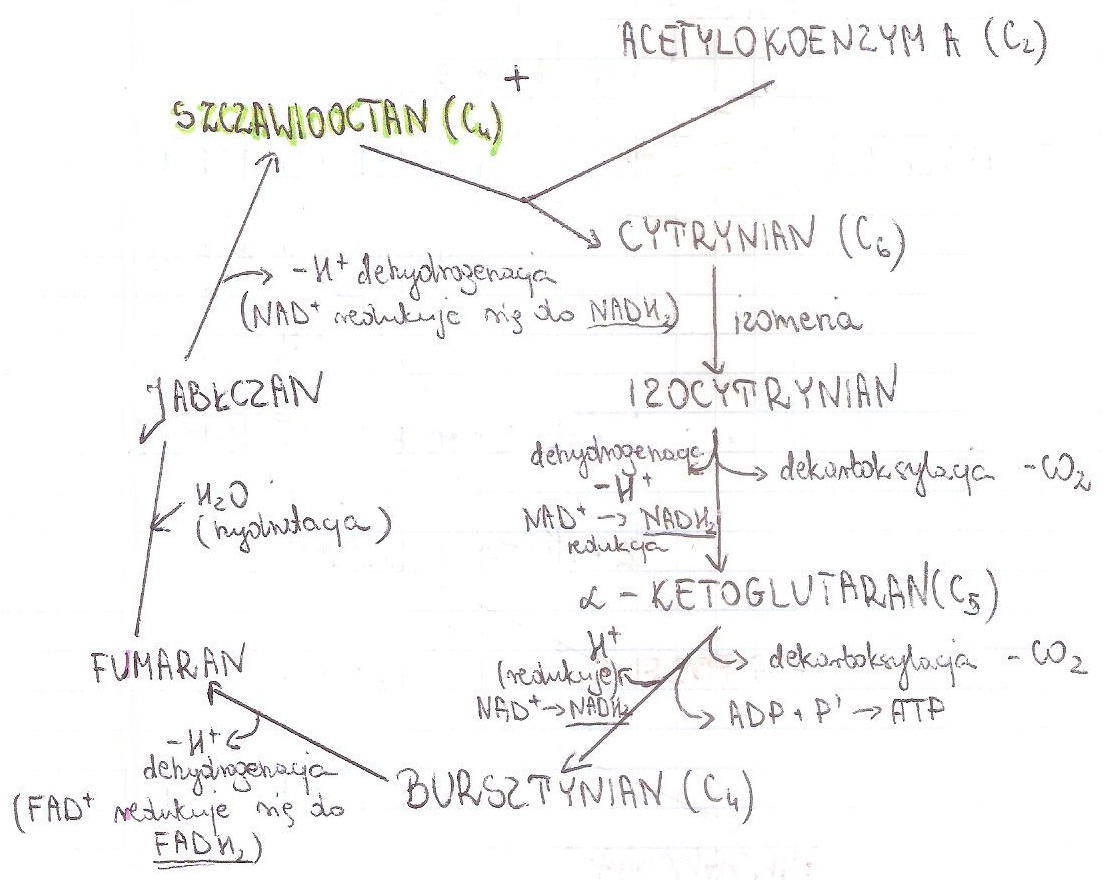 ACETYLOKOENZYM A (C₂)
+
SZCZAWIOOCTAN (C₄)
CYTRYNIAN (C₆)
-H⁺ dehydrogenacja
(NAD⁺ redukuje się do NADH₂)
izomeria
JABŁCZAN
IZOCYTRYNIAN
dehydrogenacja
-H⁺
NAD⁺ → NADH₂
redukcja
dekarboksylacja -CO₂
H₂O
(hydratacja)
α - KETOGLUTARAN (C₅)
FUMARAN
H⁺
(redukuje)
NAD⁺ → NADH₂
dekarboksylacja -CO₂
ADP + P' → ATP
-H⁺
dehydrogenacja
(FAD⁺ redukuje się do
FADH₂)
BURSZTYNIAN (C₄)